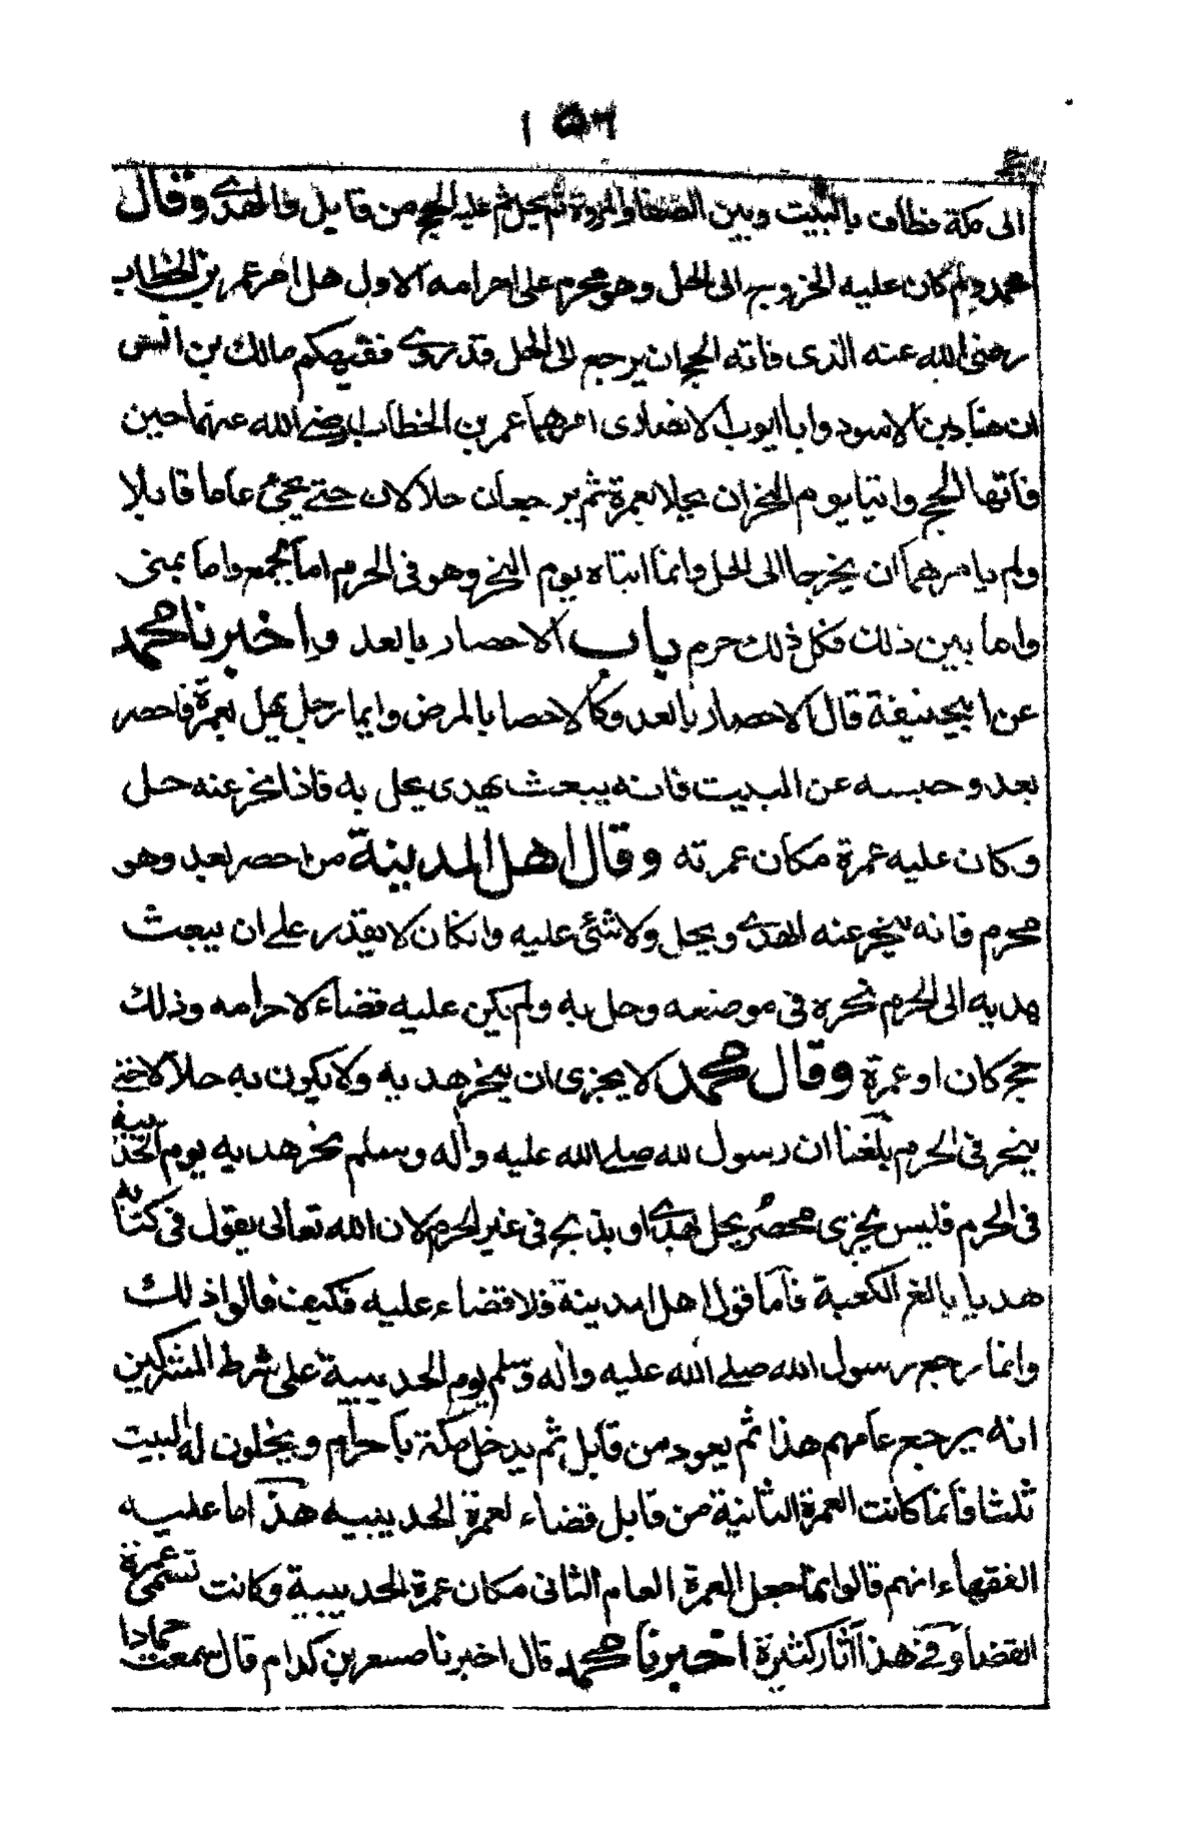 ١٥٦
حج
الى مكة فطاف بالبيت وبين الصفا والمروة ثم يحل ثم عليه الحج من قابل فالهدى وقال
محمد ولم كان عليه الخروج الى الحل وهو محرم على احرامه الاول هل امر عمر بن الخطاب
رضى الله عنه الذى فاته الحج ان يرجع الى الحل قد روى فقيهكم مالك بن انس
ان هبار بن الاسود وابا ايوب الانصارى امرهما عمر بن الخطاب رضى الله عنهما حين
فاتهما الحج واتيا يوم النحر ان يحلا بعمرة ثم يرجعان حلالان حتى يجئ عاما قابلا
ولم يامرهما ان يخرجا الى الحل وانما اتياه يوم النحر وهو فى الحرم اما بجمع واما بمنى
واما بين ذلك فكل ذلك حرم باب الاحصار بالعدو اخبرنا محمد
عن ابيحنيفة قال الاحصار بالعدو كالاحصا بالمرض وايما رجل يهل بعمرة فاحصر
بعدو حبسه عن البيت فانه يبعث بهدى يحل به فاذا نحر عنه حل
وكان عليه عمرة مكان عمرته وقال اهل المدينة من احصر بعدو وهو
محرم فانه ينحر عنه الهدى ويحل ولا شئ عليه وانكان لا يقدر على ان يبعث
هديه الى الحرم نحره فى موضعه وحل به ولم يكن عليه قضاء لاحرامه وذلك
حج كان او عمرة وقال محمد لا يجزى ان ينحر هديه ولا يكون به حلالا حتى
ينحر فى الحرم بلغنا ان رسول الله صلى الله عليه واله وسلم نحر هديه يوم الحديبية
فى الحرم فليس يجزى محصر يحل بهدى او يذبح فى غير الحرم لان الله تعالى يقول فى كتابه
هديا بالغ الكعبة فاما قول اهل المدينة فلا قضاء عليه فكيف قالوا ذلك
وانما رجع رسول الله صلى الله عليه واله وسلم يوم الحديبية على شرط المشركين
انه يرجع عامهم هذا ثم يعود من قابل ثم يدخل مكة باحرام ويخلون له البيت
ثلثا فانما كانت العمرة الثانية من قابل قضاء لعمرة الحديبيه هذا ما عليه
الفقهاء انهم قالوا انما جعل العمرة العام الثانى مكان عمرة الحديبية وكانت تسمى عمرة
القضا وفى هذا آثار كثيرة اخبرنا محمد قال اخبرنا مسعر بن كدام قال سمعت حمادا